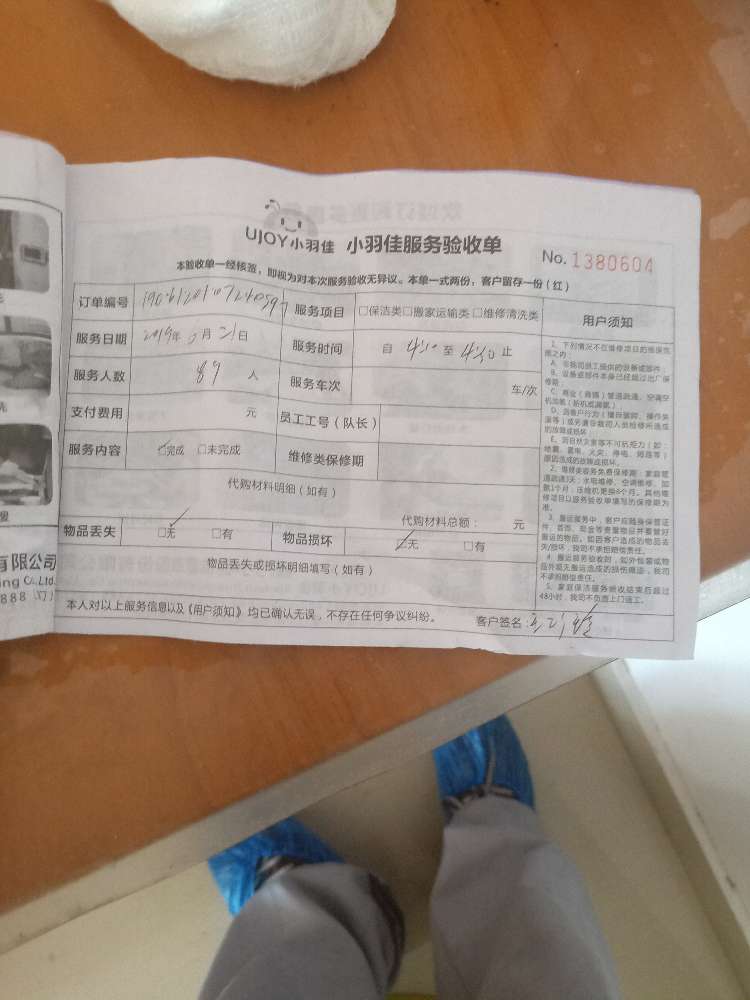 UJOY小羽佳 小羽佳服务验收单
No. 1380604
本验收单一经核签,即视为对本次服务验收无异议。本单一式两份,客户留存一份(红)
订单编号
服务项目 □保洁类□搬家运输类□维修清洗类
服务日期 2019年 月21日
服务时间 自 4:10 至 4:30 止
服务人数 人
服务车次 车/次
支付费用 元
员工工号(队长)
服务内容 □完成 □未完成
维修类保修期
代购材料明细(如有)
代购材料总额: 元
物品丢失 □无 □有
物品损坏 □无 □有
物品丢失或损坏明细填写(如有)
本人对以上服务信息以及《用户须知》均已确认无误,不存在任何争议纠纷。
客户签名:
用户须知
1、下列情况不在维修项目的维保范围之内:
A、非我司员工提供的设备或部件;
B、设备或部件本身已经超过出厂保修期;
2、维修类服务免费保修期:家庭管道疏通3天;水电维修、空调维修、加氨1个月;压缩机更换6个月。其他维修项目以服务验收单填写的保修期为准。
3、搬运服务中,客户应随身保管证件、首饰、现金等贵重物品并要做好搬运的物品。如因客户造成的物品丢失/损坏,我司不承担赔偿责任。
4、搬运服务验收时,如外包装或物品外观无搬运造成的损伤痕迹,我司不承担赔偿责任。
5、家庭保洁服务验收结束后超过48小时,我司不负责上门返工。
有限公司
ing C.,Ltd.